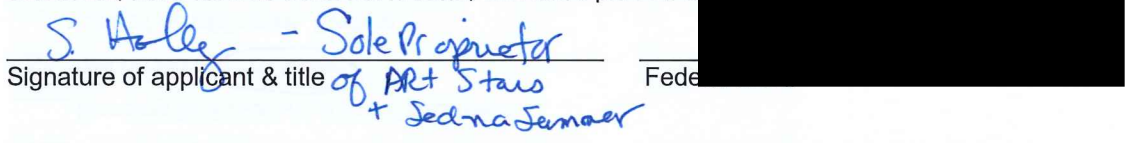 S. Holly - Sole Proprietor
Signature of applicant & title of ARt Stars Fede
+